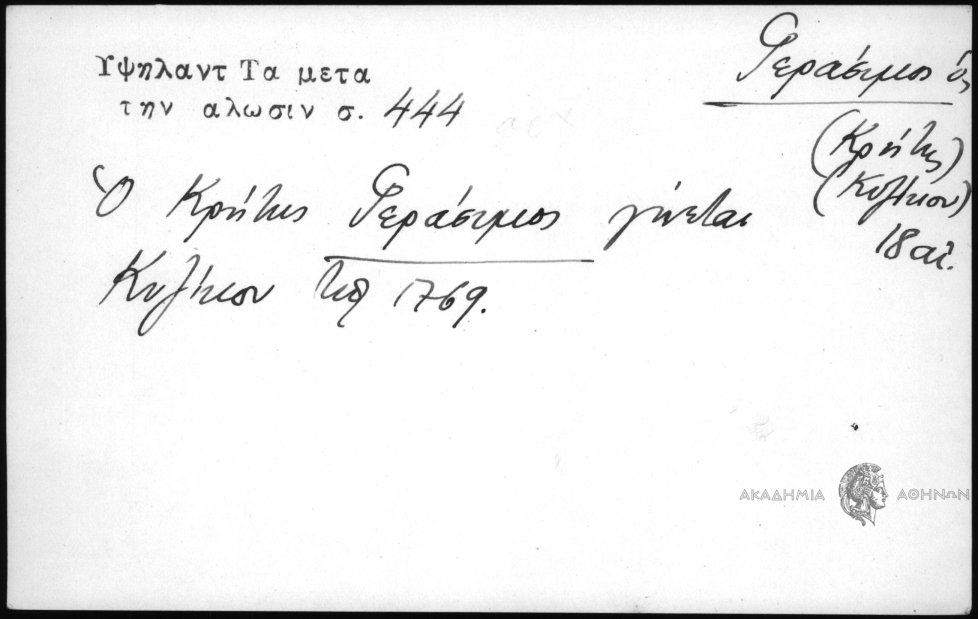 Υψηλαντ Τα μετα
την αλωσιν σ. 444
Γεράσιμος ὁ
(Κρήτης)
(Κυζίκου)
18 αἰ.
Ὁ Κρήτης Γεράσιμος γίνεται
Κυζίκου 1769.
ΑΚΑΔΗΜΙΑ ΑΘΗΝΩΝ